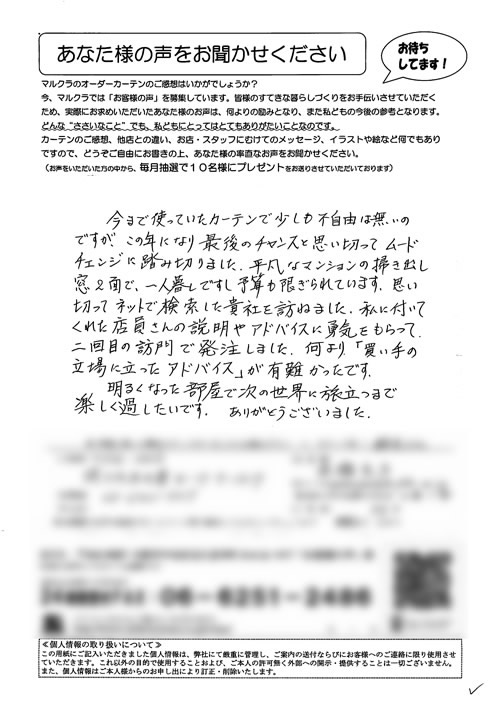 あなた様の声をお聞かせください
お待ち
してます！
マルクラのオーダーカーテンのご感想はいかがでしょうか？
今、マルクラでは「お客様の声」を募集しています。皆様のすてきな暮らしづくりをお手伝いさせていただく
ため、実際にお求めいただいたあなた様のお声は、何よりの励みとなり、また私どもの今後の参考となります。
どんな“ささいなこと”でも、私どもにとってはとてもありがたいことなのです。
カーテンのご感想、他店との違い、お店・スタッフにむけてのメッセージ、イラストや絵など何でもあり
ですので、どうぞご自由にお書きの上、あなた様の率直なお声をお聞かせください。
（お声をいただいた方の中から、毎月抽選で１０名様にプレゼントをお送りさせていただいております）
今まで使っていたカーテンで少しも不自由は無いの
ですが、この年になり最後のチャンスと思い切って ムード
チェンジに踏み切りました。平凡なマンションの掃き出し
窓２面で、一人暮しですし予算も限ぎられています。思い
切って ネットで検索した貴社を訪ねました。私に付いて
くれた店員さんの説明やアドバイスに勇気をもらって、
二回目の訪門で発注しました。何より「買い手の
立場に立ったアドバイス」が有難かったです。
明るくなった部屋で次の世界に旅立つまで
楽しく過したいです。ありがとうございました。
06-6251-2486
≪個人情報の取り扱いについて≫
この用紙にご記入いただきました個人情報は、弊社にて厳重に管理し、ご案内の送付ならびにお客様へのご連絡に限り使用させ
ていただきます。これ以外の目的で使用することおよび、ご本人の許可無く外部への開示・提供することは一切ございません。
また、個人情報はご本人様からのお申し出により訂正・削除いたします。